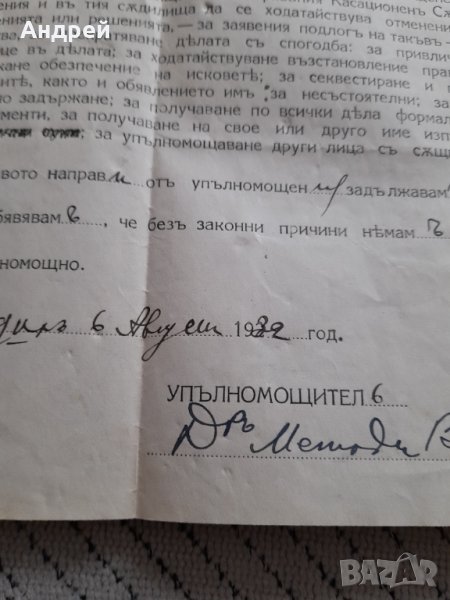 и въ тия сѫдилища да се ходатайствува отменени
Касационенъ Сѫ
или решенията,— за заявения подлогъ на такъвъ —
Андрей
атяване дѣлата съ спогодба: за привлич
це въ дѣлата; за ходатайствуване възстановление прав
кане обезпечение на исковетѣ; за секвестиране и
нтѣ, както и обявлението имъ за несъстоятелни; за
но задържане; за получаване по всички дѣла формал
менти, за получаване на свое или друго име изп
за упълномощаване други лица съ сѫщи
вото направи отъ упълномощен задължавам
бявявам в, че безъ законни причини нѣмам ъ
номощно.
6 Август 1932 год.
УПЪЛНОМОЩИТЕЛ 6
Дръ Методи В
BAZAR